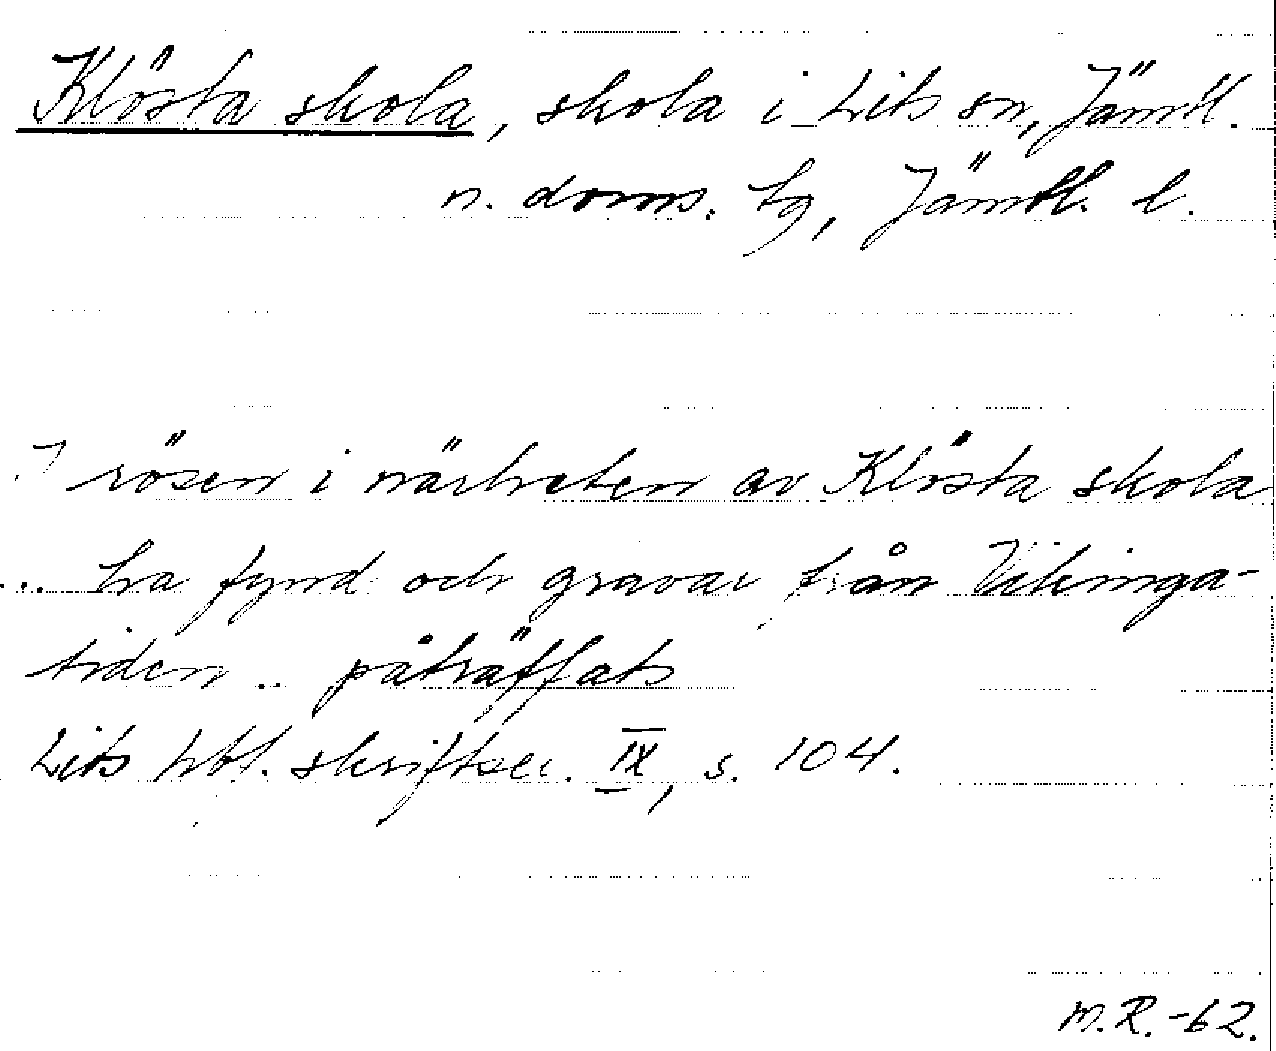 Klösta skola, skola i Lits sn, Jämtl.
n. doms. hg, Jämtl. l.
I rösen i närheten av Klösta skola
.. ha fynd och gravar från Vikinga-
tiden .. påträffats
Lits hbl. skriftser. IX, s. 104.
M.R.-62.